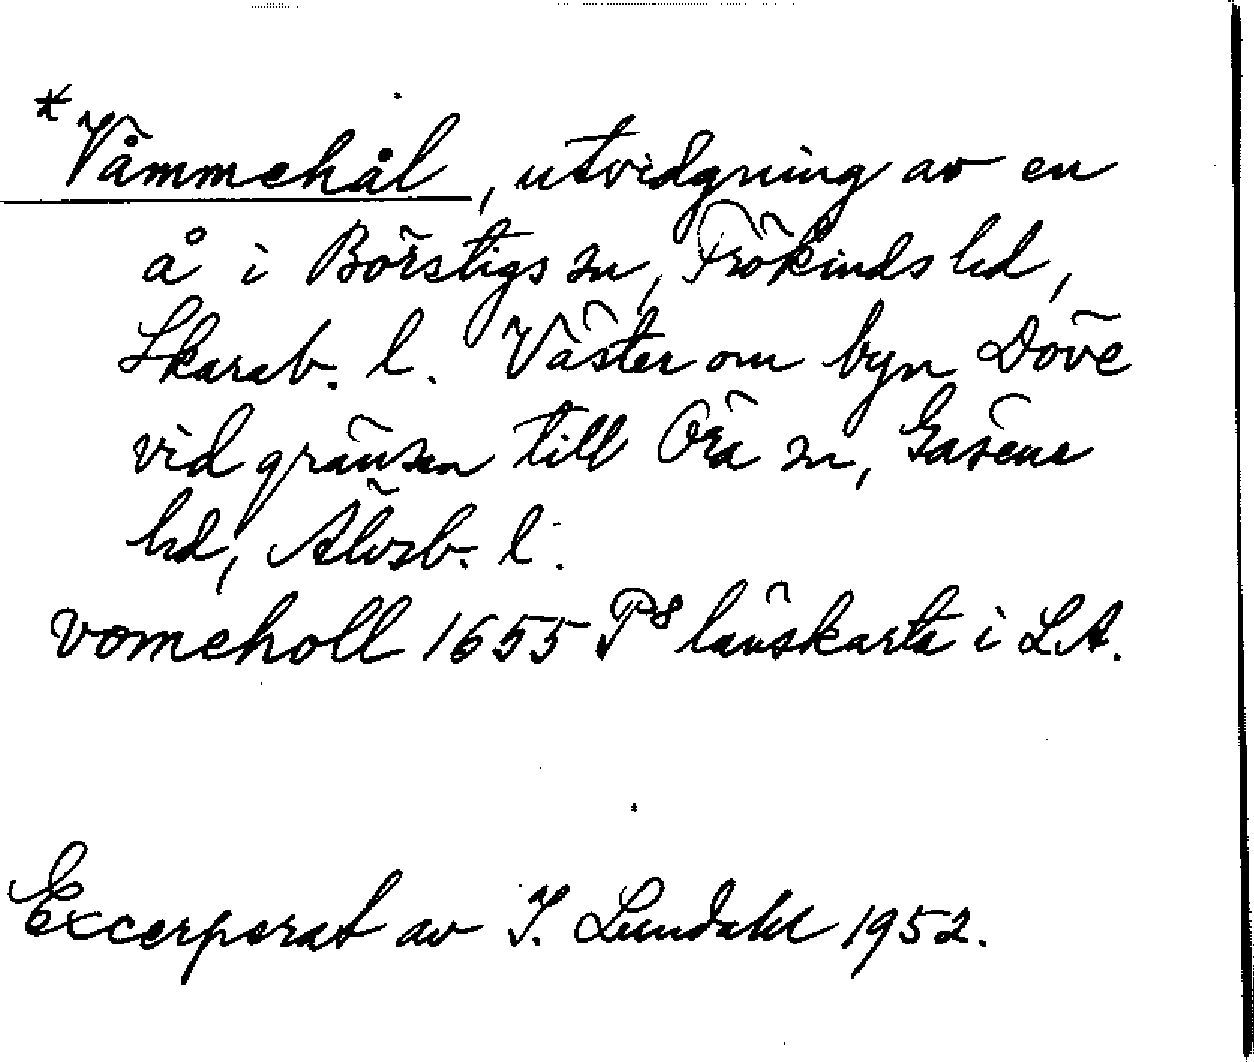 *Våmmehål, utvidgning av en
å i Börstigs sn, Frökinds hd,
Skarab. l. Väster om byn Döve
vid gränsen till Öra sn, Gäsene
hd, Älvsb. l.
vomeholl 1655 P⁸ länskarta i LA.
Excerperat av I. Lundahl 1952.